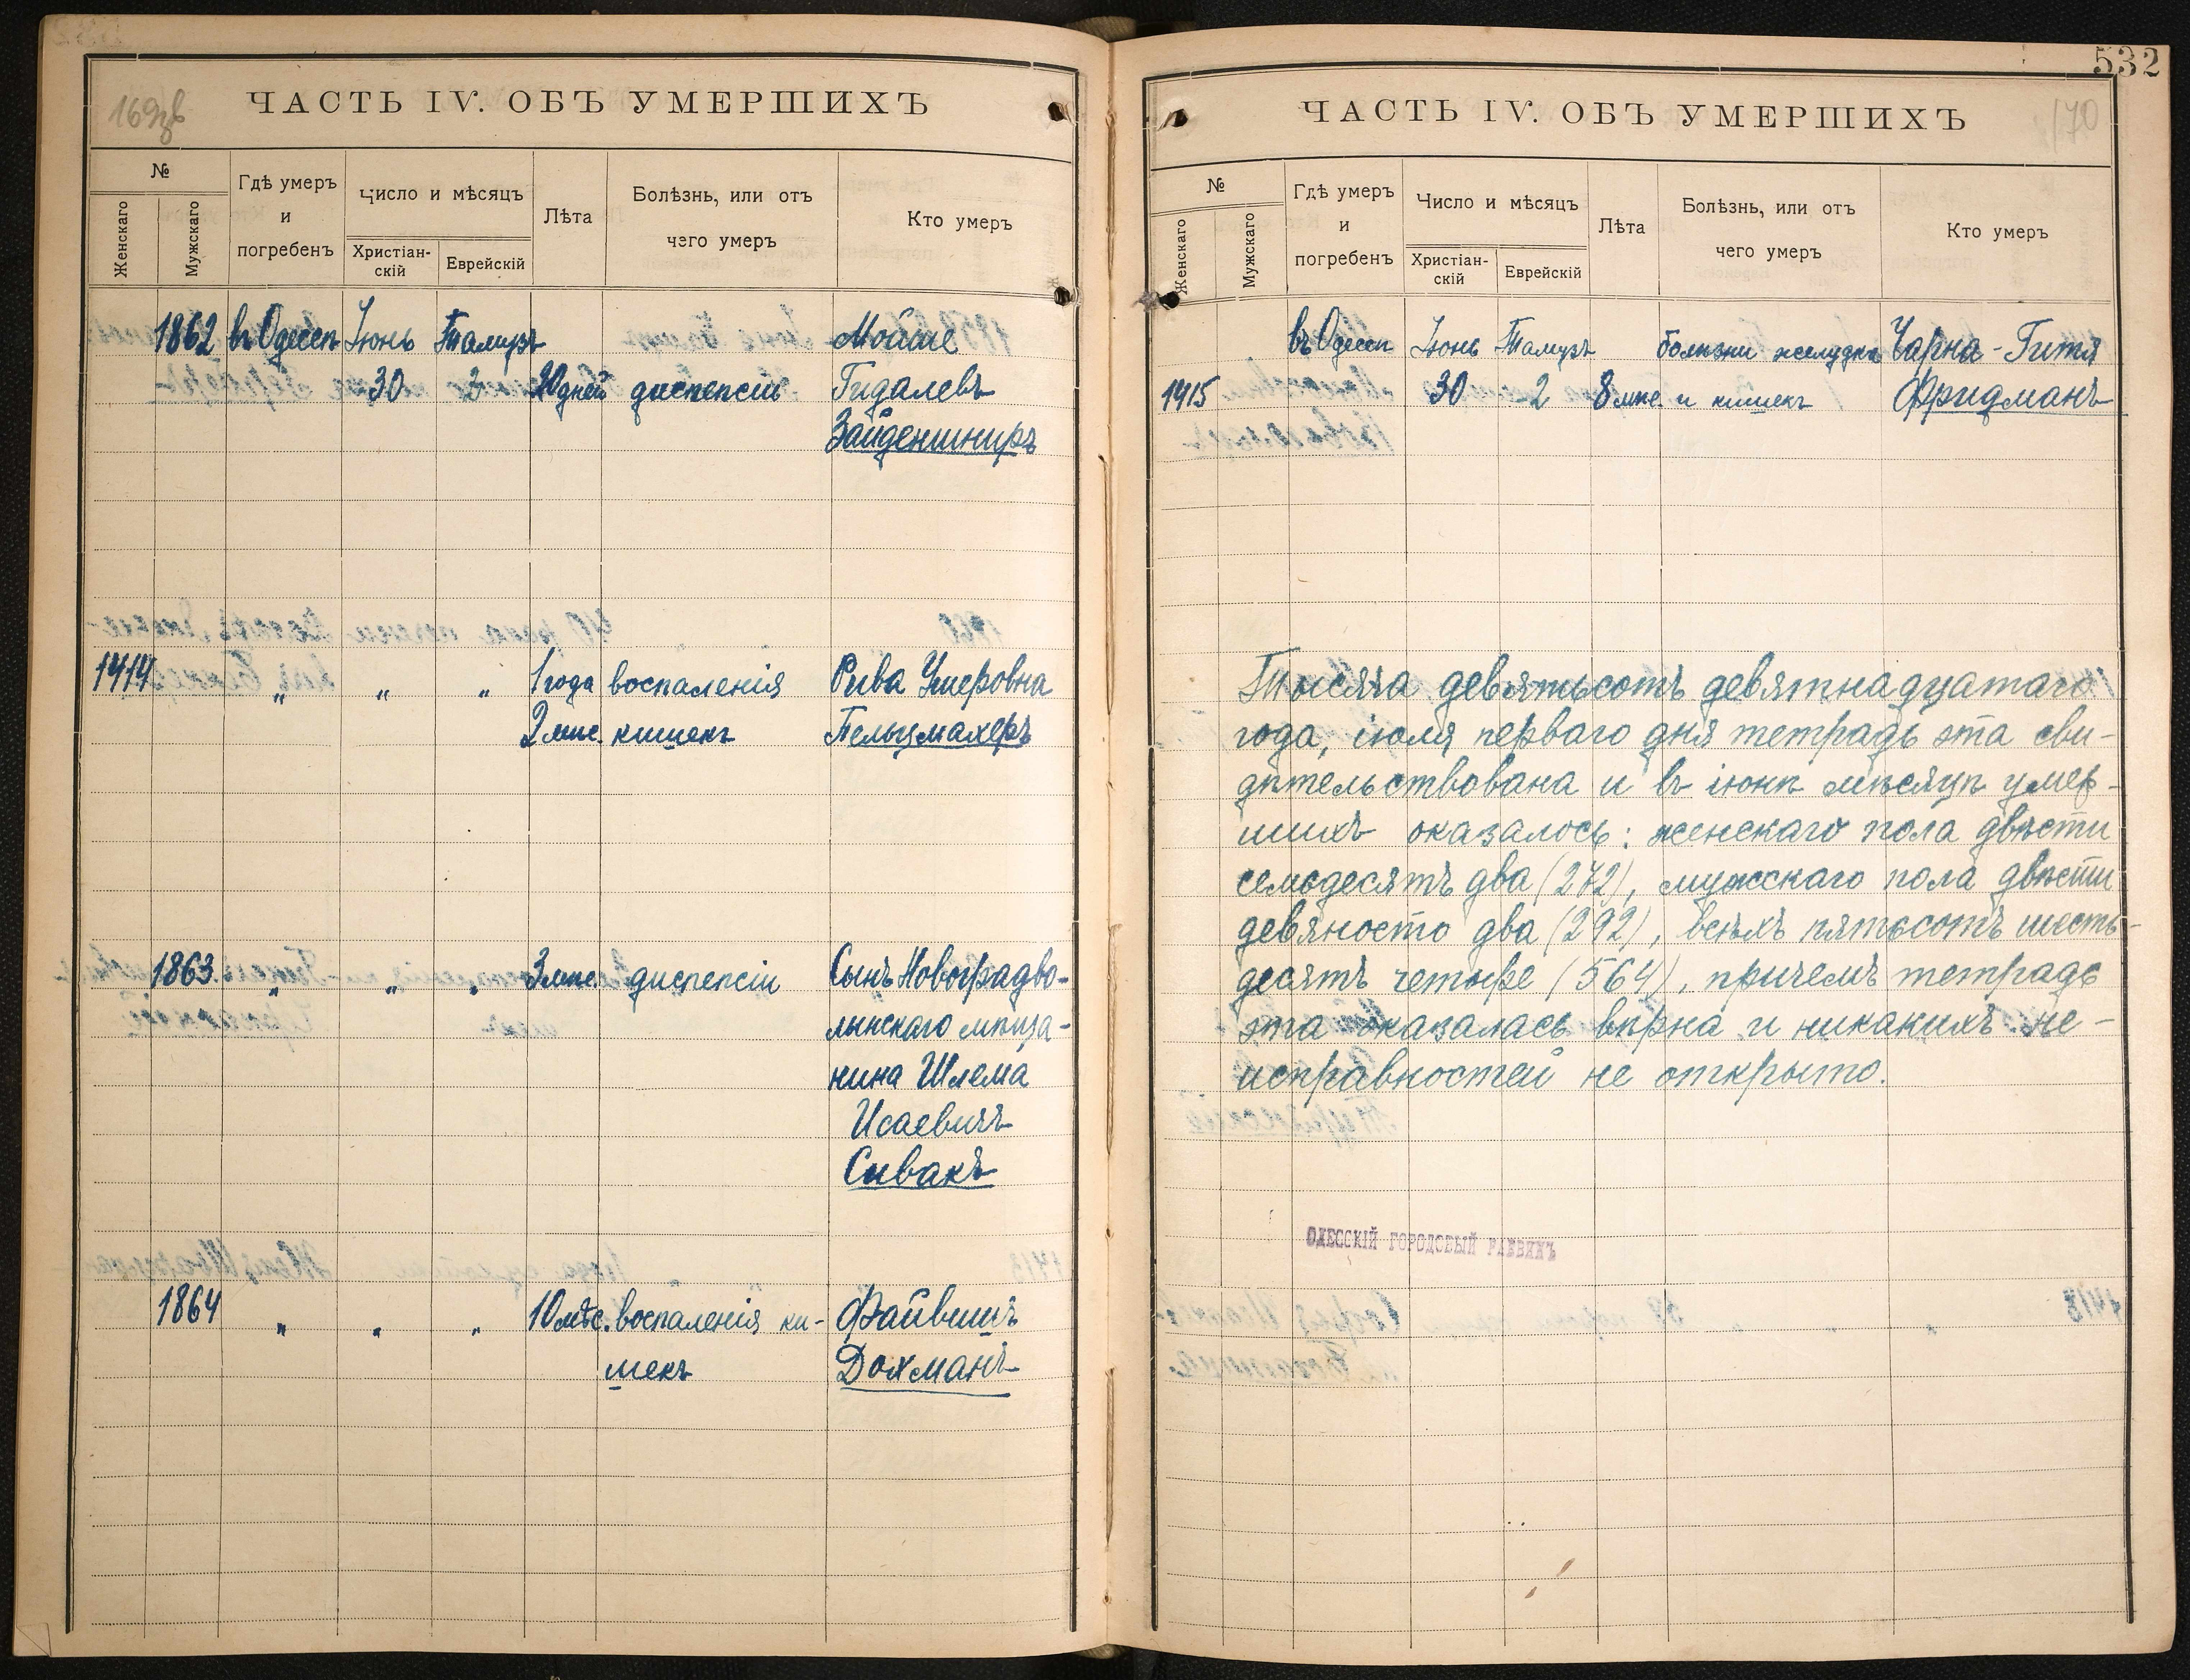 532
ЧАСТЬ IV. ОБЪ УМЕРШИХЪ
№
Женскаго
Мужскаго
Гдѣ умеръ
и
погребенъ
Число и мѣсяцъ
Христіан-
скій
Еврейскій
Лѣта
Болѣзнь, или отъ
чего умеръ
Кто умеръ
1862 въ Одессѣ Іюнь Тамузъ Мойше
30 2 20 дней диспепсіи Гидалевъ
Зайденшниръ
1414 „ „ „ 1 года воспаленія Рива Умеровна
2 мѣс. кишекъ Пельцмахеръ
1863. „ „ „ 3 мѣс. диспепсіи Сынъ Новоградво-
лынскаго мѣща-
нина Шлема
Исаевичъ
Сивакъ
1864 „ „ „ 10 мѣс. воспаленія ки- Файвишъ
шекъ Дохманъ
ЧАСТЬ IV. ОБЪ УМЕРШИХЪ
170
№
Женскаго
Мужскаго
Гдѣ умеръ
и
погребенъ
Число и мѣсяцъ
Христіан-
скій
Еврейскій
Лѣта
Болѣзнь, или отъ
чего умеръ
Кто умеръ
въ Одессѣ Іюнь Тамузъ болѣзни желудка Чарна-Гитя
1415 30 2 8 мѣс. и кишекъ Фридманъ
Тысяча девятьсотъ девятнадцатаго
года, іюля перваго дня тетрадь эта сви-
дѣтельствована и въ іюнѣ мѣсяцѣ умер-
шихъ оказалось: женскаго пола двѣсти
семьдесятъ два (272), мужскаго пола двѣсти
девяносто два (292), всѣхъ пятьсотъ шесть-
десятъ четыре (564), причемъ тетрадь
эта оказалась вѣрна и никакихъ не-
исправностей не открыто.
ОДЕССКІЙ ГОРОДОВЫЙ РАВВИНЪ